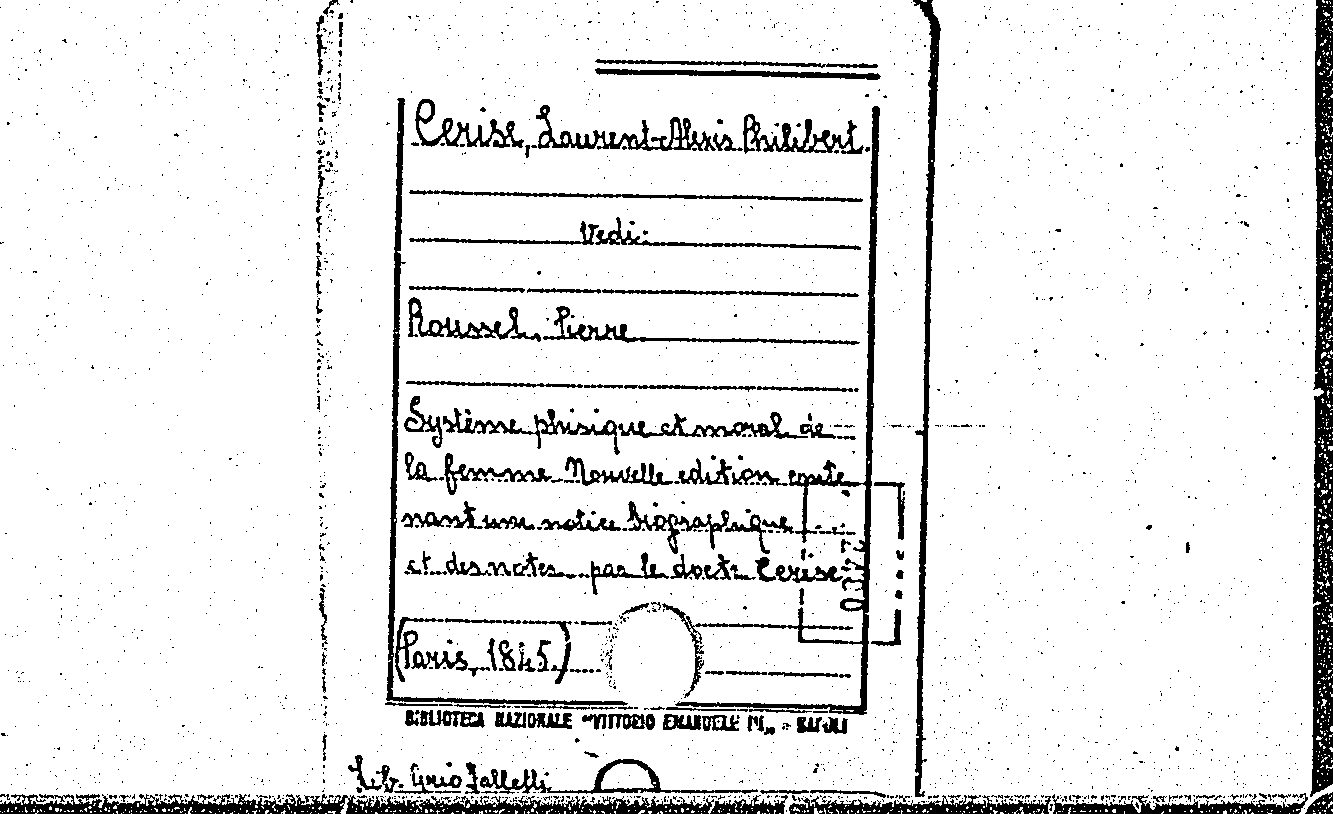 Cerise, Laurent-Alexis Philibert.
Vedi:
Roussel, Pierre
Système phisique et moral de
la femme Nouvelle edition conte
nant une notice biographique ...
et des notes par le doctr Cerise
(Paris, 1845.)
BIBLIOTECA NAZIONALE "VITTORIO EMANUELE III„ - NAPOLI
Lib. Falletti